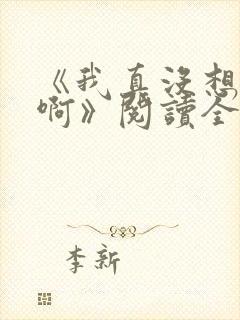 《我真没想
啊》閱讀全
李新